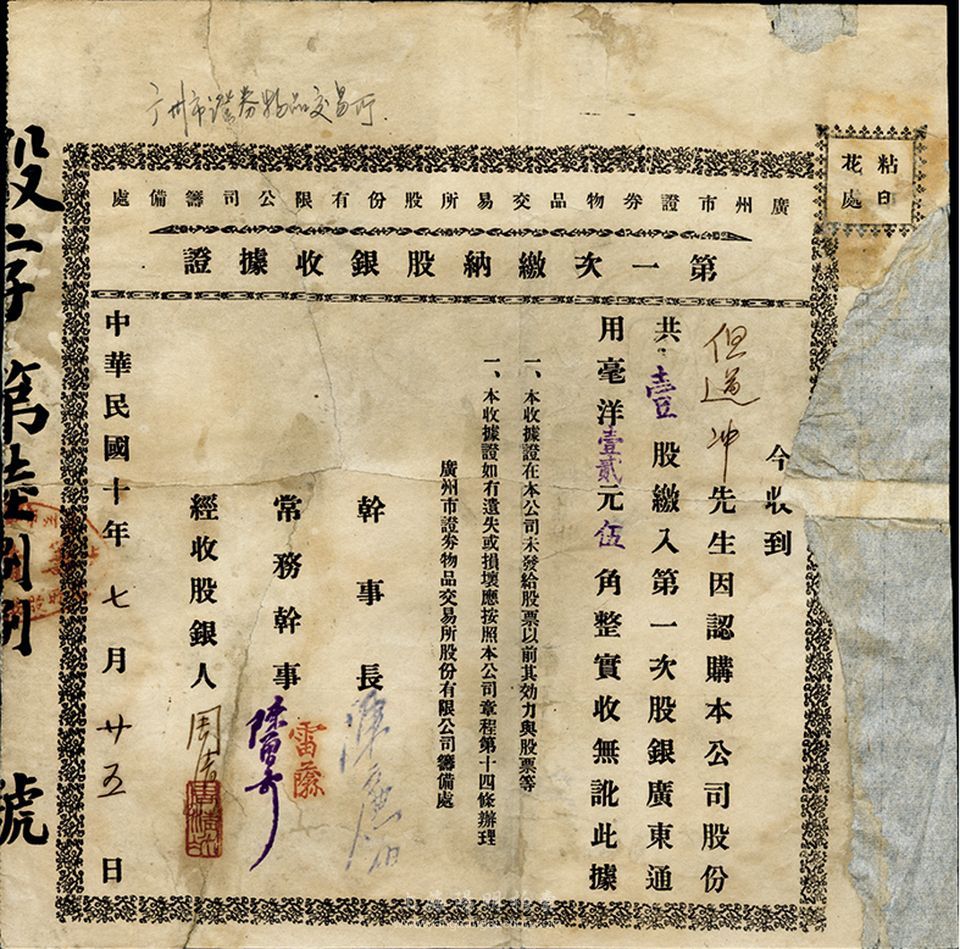 广州市證券物品交易所.
粘印
花處
廣州市證券物品交易所股份有限公司籌備處
第一次繳納股銀收據證
今收到
但道冲先生因認購本公司股份
共壹股繳入第一次股銀廣東通
用毫洋壹貳元伍角整實收無訛此據
一、本收據證在本公司未發給股票以前其効力與股票等
一、本收據證如有遺失或損壞應按照本公司章程第十四條辦理
廣州市證券物品交易所股份有限公司籌備處
幹事長
常務幹事
雷蔭
經收股銀人
中華民國十年七月廿五日
股字第陸捌捌號